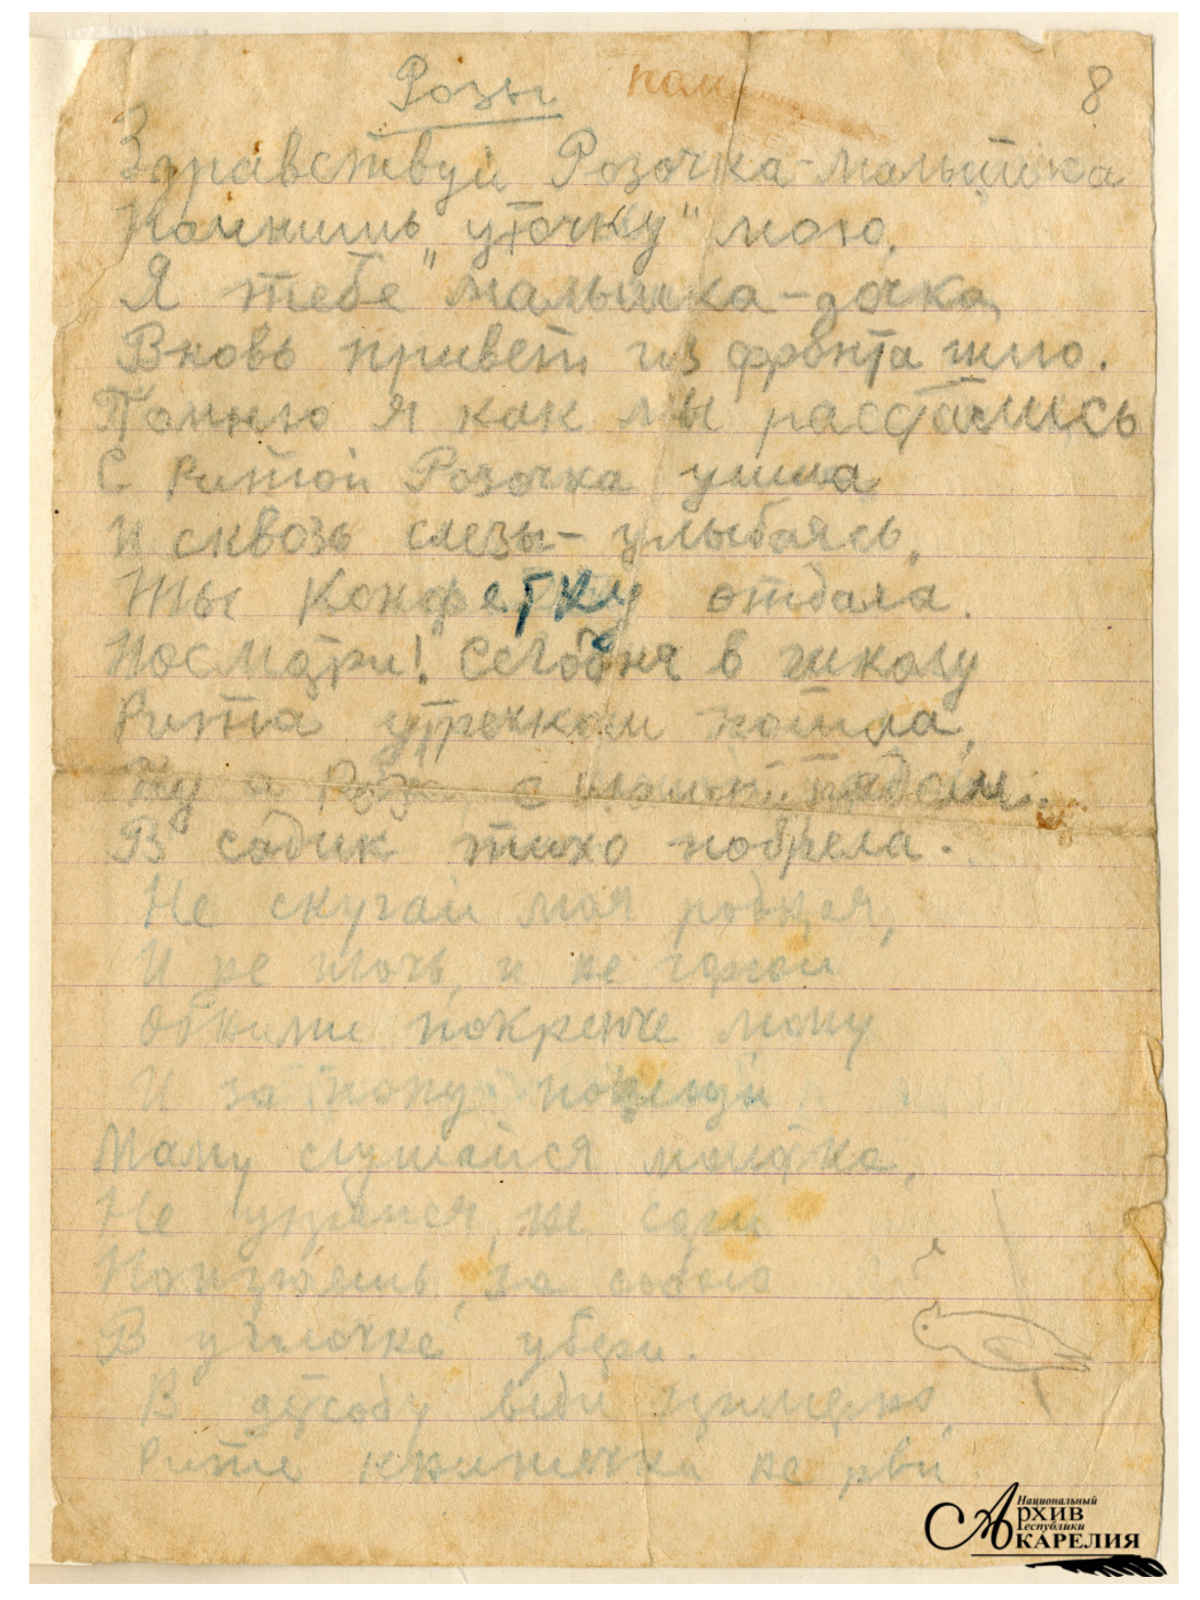 Розы
8
Здравствуй Розочка-малышка
Помнишь „уточку" мою,
Я тебе малышка-дочка
Вновь привет из фронта шлю.
Помню я как мы расстались
С Ритой Розочка ушла
И сквозь слезы-улыбаясь,
Ты конфетку отдала.
Посмотри! Сегодня в школу
Рита утречком пошла,
Ну а Роза с мамой рядом
В садик тихо побрела.
Не скучай моя родная,
И не плачь, и не горюй
Обними покрепче маму
И за папу поцелуй
Маму слушайся малютка,
Не упрямся, не сори
Поиграешь, за собою
В уголочке убери.
В детсаду веди примерно,
Рите книжечки не рви
Национальный
Архив
Республики
Карелия